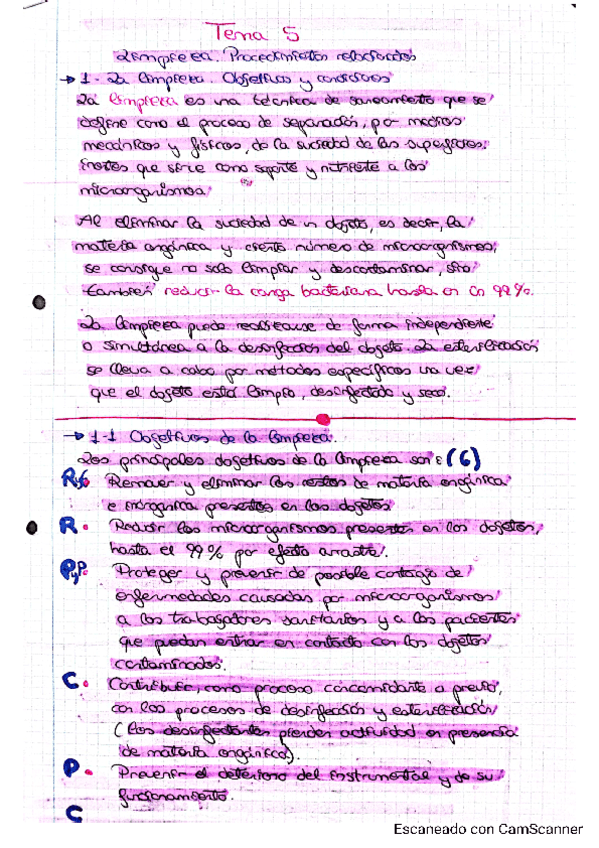 Tema 5
Limpieza. Procedimientos relacionados
→ 1- La limpieza. Objetivos y condiciones
La limpieza es una técnica de saneamiento que se
define como el proceso de separación, por medios
mecánicos y físicos, de la suciedad de las superficies
inertes que sirve como soporte y nutriente a los
microorganismos.
Al eliminar la suciedad de un objeto, es decir, la
materia orgánica y cierto número de microorganismos,
se consigue no solo limpiar y descontaminar, sino
también reducir la carga bacteriana hasta en un 99%.
La limpieza puede realizarse de forma independiente
o simultánea a la desinfección del objeto. La esterilización
se lleva a cabo por métodos específicos una vez
que el objeto está limpio, desinfectado y seco.
→ 1-1 Objetivos de la limpieza.
Los principales objetivos de la limpieza son: (6)
Remover y eliminar los restos de materia orgánica
e inorgánica presentes en los objetos
R. Reducir los microorganismos presentes en los objetos,
hasta el 99% por efecto arrastre.
PyP. Proteger y prevenir de posible contagio de
enfermedades causadas por microorganismos
a los trabajadores sanitarios y a los pacientes
que puedan entrar en contacto con los objetos
contaminados.
C. Contribuir, como proceso concomitante o previo,
con los procesos de desinfección y esterilización
(los desinfectantes pierden actividad en presencia
de materia orgánica).
P. Prevenir el deterioro del instrumental y de su
funcionamiento.
C
Escaneado con CamScanner